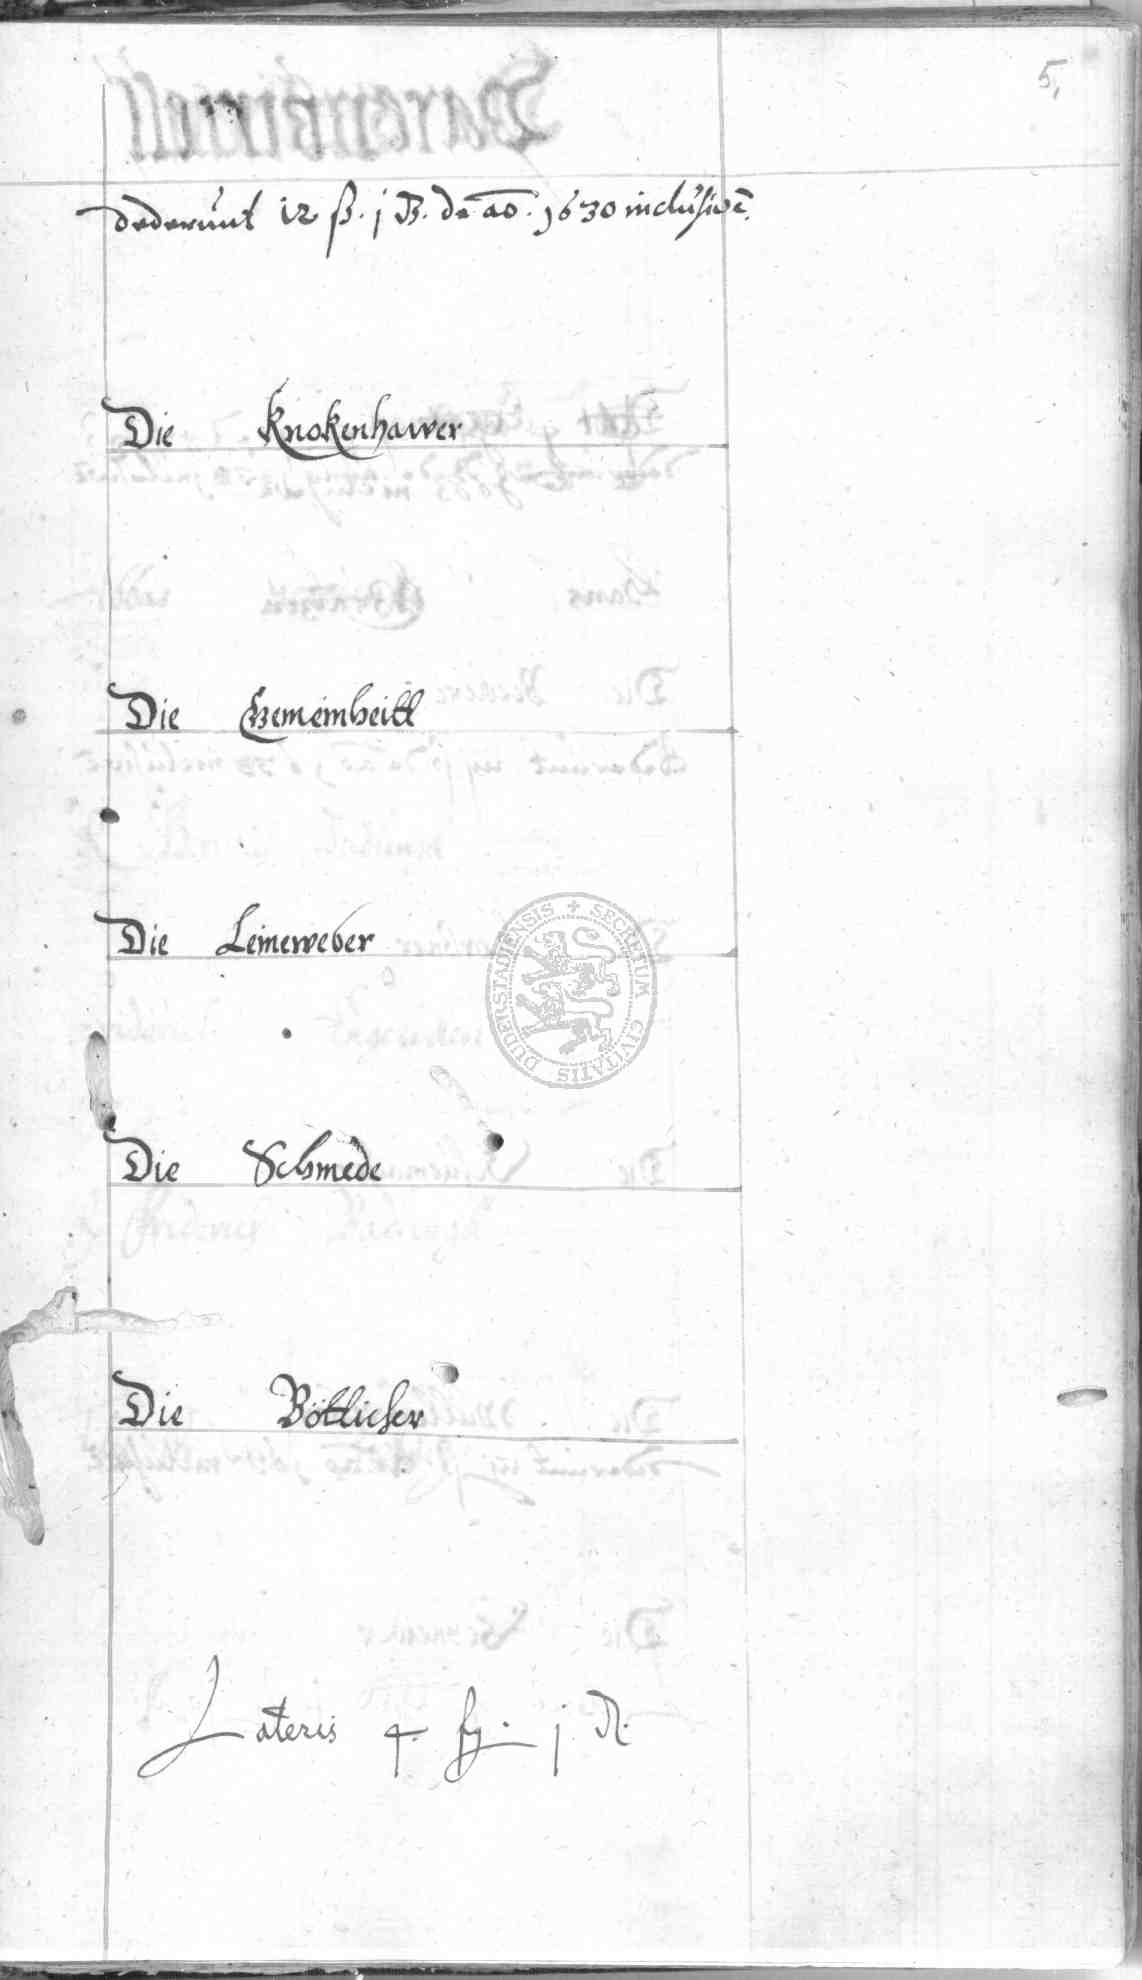 5,
dederunt iz ß. j ₰. de ao. 1630 inclusivè.
Die Knokenhawer
Die Gemeinheitt
Die Leineweber
SECRETUM CIVITATIS DUDERSTADIENSIS
Die Schmede
Die Böttlicher
Lateris 4. ß. j. ₰.